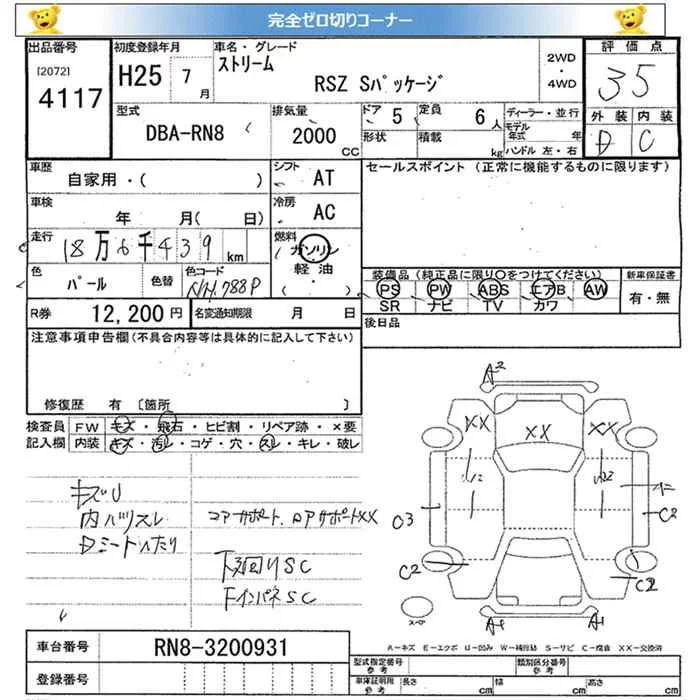 完全ゼロ切りコーナー
出品番号
[2072]
4117
初度登録年月
H25 7月
車名・グレード
ストリーム
RSZ Sパッケージ
2WD
・
4WD
評価点
35
外装 内装
D C
型式
DBA-RN8
排気量
2000
CC
ドア 5
定員 6人
形状
積載 kg
ディーラー・並行
モデル年式 年
ハンドル 左・右
車歴
自家用・( )
シフト
AT
セールスポイント (正常に機能するものに限ります)
車検
年 月( 日)
冷房
AC
走行
18万6千439km
燃料
ガソリン
軽油
( )
色
パール
色替
色コード
NH788P
装備品(純正品に限り〇をつけてください)
PS PW ABS エアB AW
SR ナビ TV カワ
新車保証書
有・無
R券 12,200円
名変通知期限 月 日
後日品
注意事項申告欄(不具合内容等は具体的に記入して下さい)
修復歴 有 〔箇所 〕
検査員記入欄
FW キズ・飛石・ヒビ割・リペア跡・×要
内装 キズ・汚れ・コゲ・穴・スレ・キレ・破レ
キズU
内ハゲスレ
コアサポート、ロアサポートXX
下廻りSC
FインパネSC
A2
XX
XX
XX
C3
C2
C2
C2
A1
A1
スペア
A-キズ E-エクボ U-凹み W-補修跡 S-サビ C-腐食 XX-交換済
車台番号 RN8-3200931
登録番号
型式指定番号 参考
類別区分番号 参考
車庫証明用 参考
長さ cm
幅 cm
高さ cm